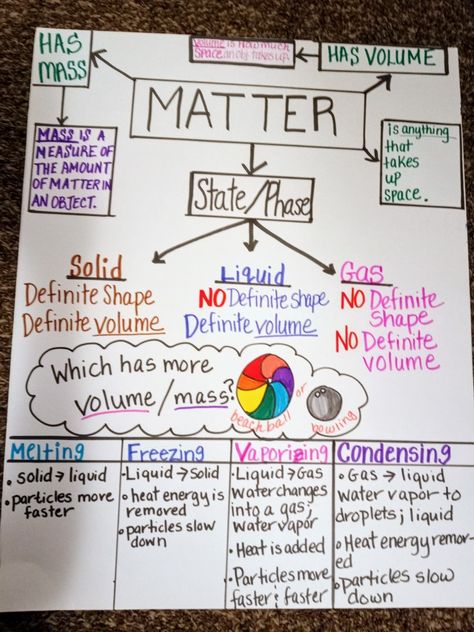 HAS
MASS
Volume is how much
space an obj. takes up.
HAS VOLUME
MATTER
MASS IS A
MEASURE OF
THE AMOUNT
OF MATTER IN
AN OBJECT.
is anything
that
takes
up
space.
State/Phase
Solid
Definite Shape
Definite volume
Liquid
NO Definite shape
Definite volume
Gas
NO Definite
Shape
NO Definite
volume
Which has more
volume/mass?
beachball
or
bowling
Melting
• solid → liquid
• particles move
faster
Freezing
-Liquid → Solid
• heat energy is
removed
• particles slow
down
Vaporizing
• Liquid → Gas
water changes
into a gas;
water vapor
• Heat is added
• Particles move
faster & faster
Condensing
• Gas → liquid
water vapor to
droplets; liquid
• Heat energy remov-
ed
• Particles slow
down